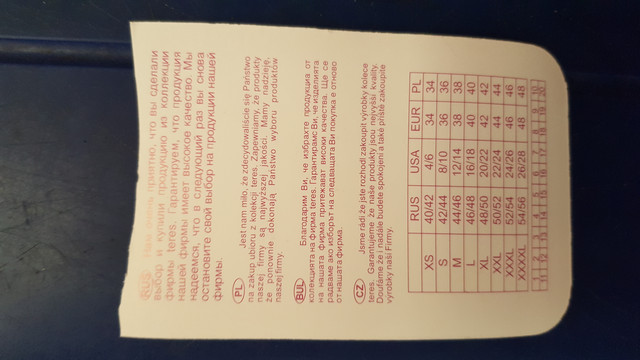 RUS Нам очень приятно, что вы сделали
выбор и купили продукцию из коллекции
фирмы teres. Гарантируем, что продукция
нашей фирмы имеет высокое качество. Мы
надеемся, что в следующий раз вы снова
остановите свой выбор на продукции нашей
фирмы.
PL Jest nam miło, że zdecydowaliście się Państwo
na zakup ubioru z kolekcji teres. Zapewniamy, że produkty
naszej firmy są najwyższej jakości. Mamy nadzieję,
że ponownie dokonają Państwo wyboru produktów
naszej firmy.
BUL Благодарим Ви, че избрахте продукция от
колекцията на фирма teres. Гарантираме Ви, че изделията
на нашата фирма притежават високи качества. Ще се
радваме ако изборът на следващата Ви покупка е отново
от нашата фирма.
CZ Jsme rádi že jste rozhodl zakoupit výrobky kolece
teres. Garantujeme že naše produkty jsou nejvyšší kvality.
Doufáme že i nadále budete spokojeni a také příště zakoupíte
výrobky naší Firmy.
RUS USA EUR PL
XS 40/42 4/6 34 34
S 42/44 8/10 36 36
M 44/46 12/14 38 38
L 46/48 16/18 40 40
XL 48/50 20/22 42 42
XXL 50/52 22/24 44 44
XXXL 52/54 24/26 46 46
XXXXL 54/56 26/28 48 48